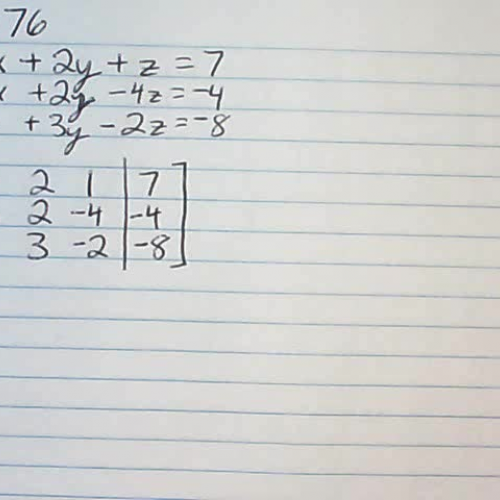 76
x + 2y + z = 7
x + 2y - 4z = -4
+ 3y - 2z = -8
2 1 | 7
2 -4 | -4
3 -2 | -8 ]